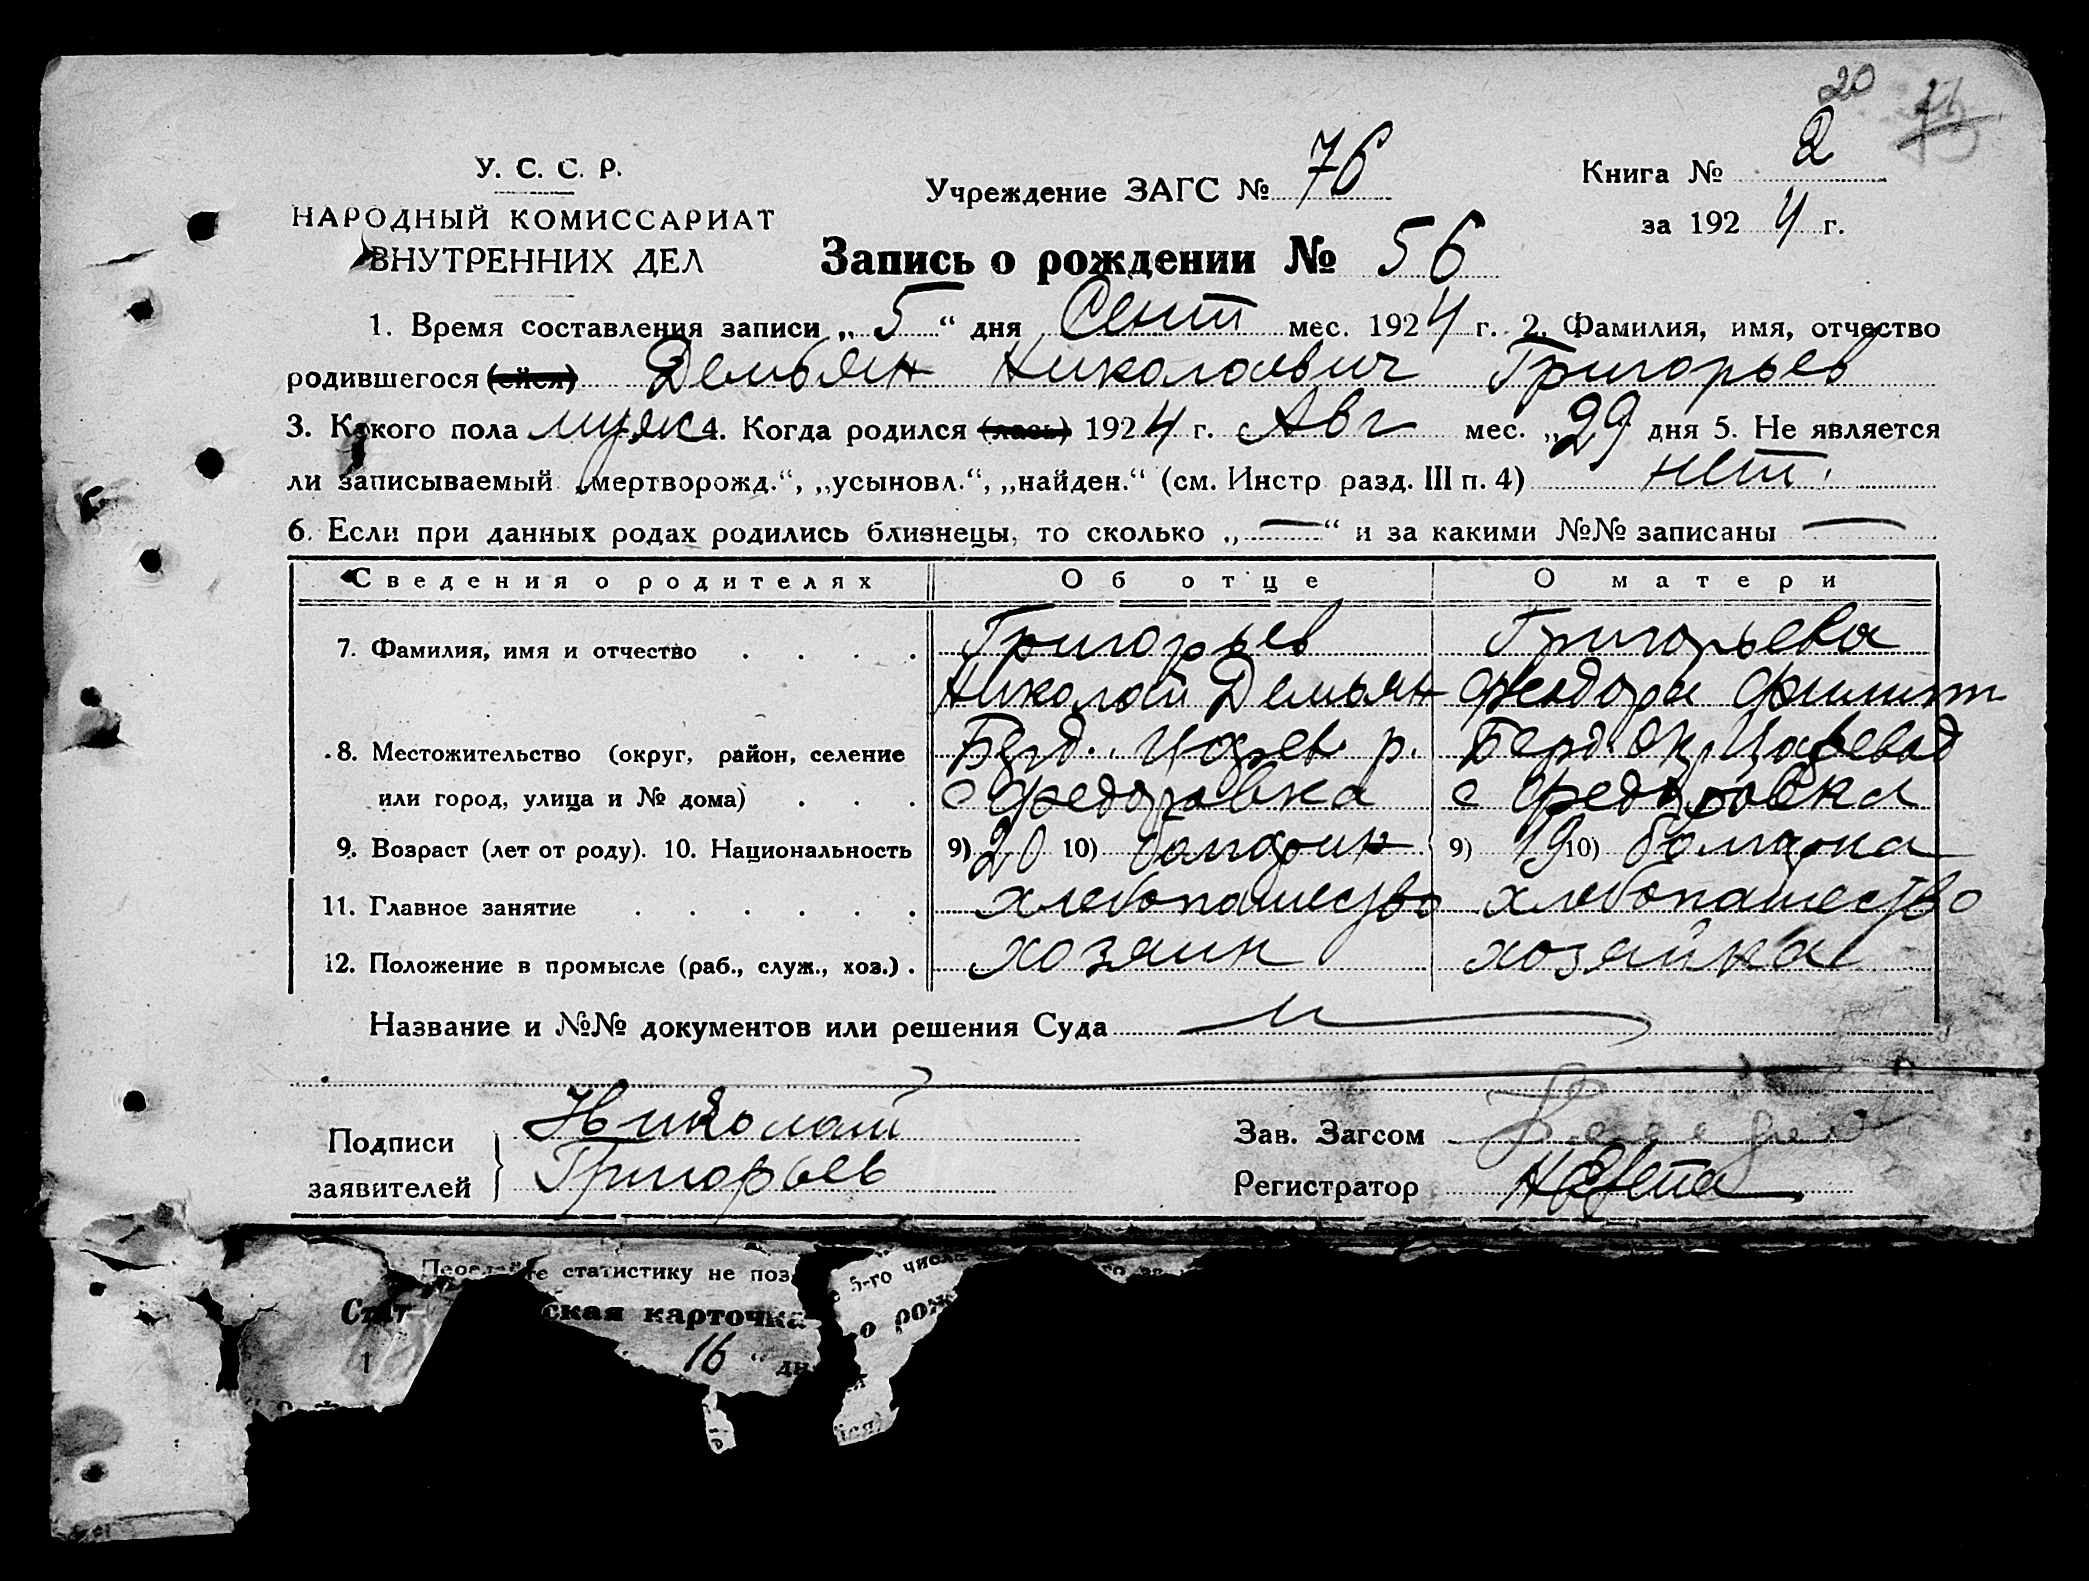 20
У. С. С. Р.
НАРОДНЫЙ КОМИССАРИАТ
ВНУТРЕННИХ ДЕЛ
Учреждение ЗАГС № 76
Книга № 2
за 1924 г.
Запись о рождении № 56
1. Время составления записи „ 5 “ дня Сент мес. 1924 г. 2. Фамилия, имя, отчество
родившегося (ейся) Демьян Николаевич Григорьев
3. Какого пола мужс 4. Когда родился (лась) 1924 г. Авг мес. „ 29 дня 5. Не является
ли записываемый „мертворожд.“, „усыновл.“, „найден.“ (см. Инстр разд. III п. 4) нет
6. Если при данных родах родились близнецы, то сколько „ — “ и за какими №№ записаны —
Сведения о родителях Об отце О матери
7. Фамилия, имя и отчество . . . . Григорьев Григорьева
Николай Демьян Феодора Филип
8. Местожительство (округ, район, селение Берд. Царев р. Берд. ок Царевод
или город, улица и № дома) . . . с Федоровка с Федоровка
9. Возраст (лет от роду). 10. Национальность 9) 20 10) болгарин 9) 19 10) болгарка
11. Главное занятие . . . . . . хлебопашество хлебопашество
12. Положение в промысле (раб., служ., хоз.) . хозяин хозяйка
Название и №№ документов или решения Суда
Подписи Николай Зав. Загсом
заявителей Григорьев Регистратор
статистику не поз 5-го числа
Стат ская карточка о рож
1 16 “ дн